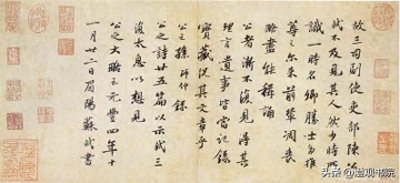 故三司副使吏部陳公
軾不及見其人然少時所
識一時名卿勝士多推
尊之爾來前輩凋喪
略盡能稱誦
公者漸不復見得其
理言遺事皆當記錄
寶藏況其文章乎
公之孫師仲錄
公之詩廿五篇以示軾三
復太息以想見
公之大略元豐四年十
一月廿二日眉陽蘇軾書
头条 @观书院